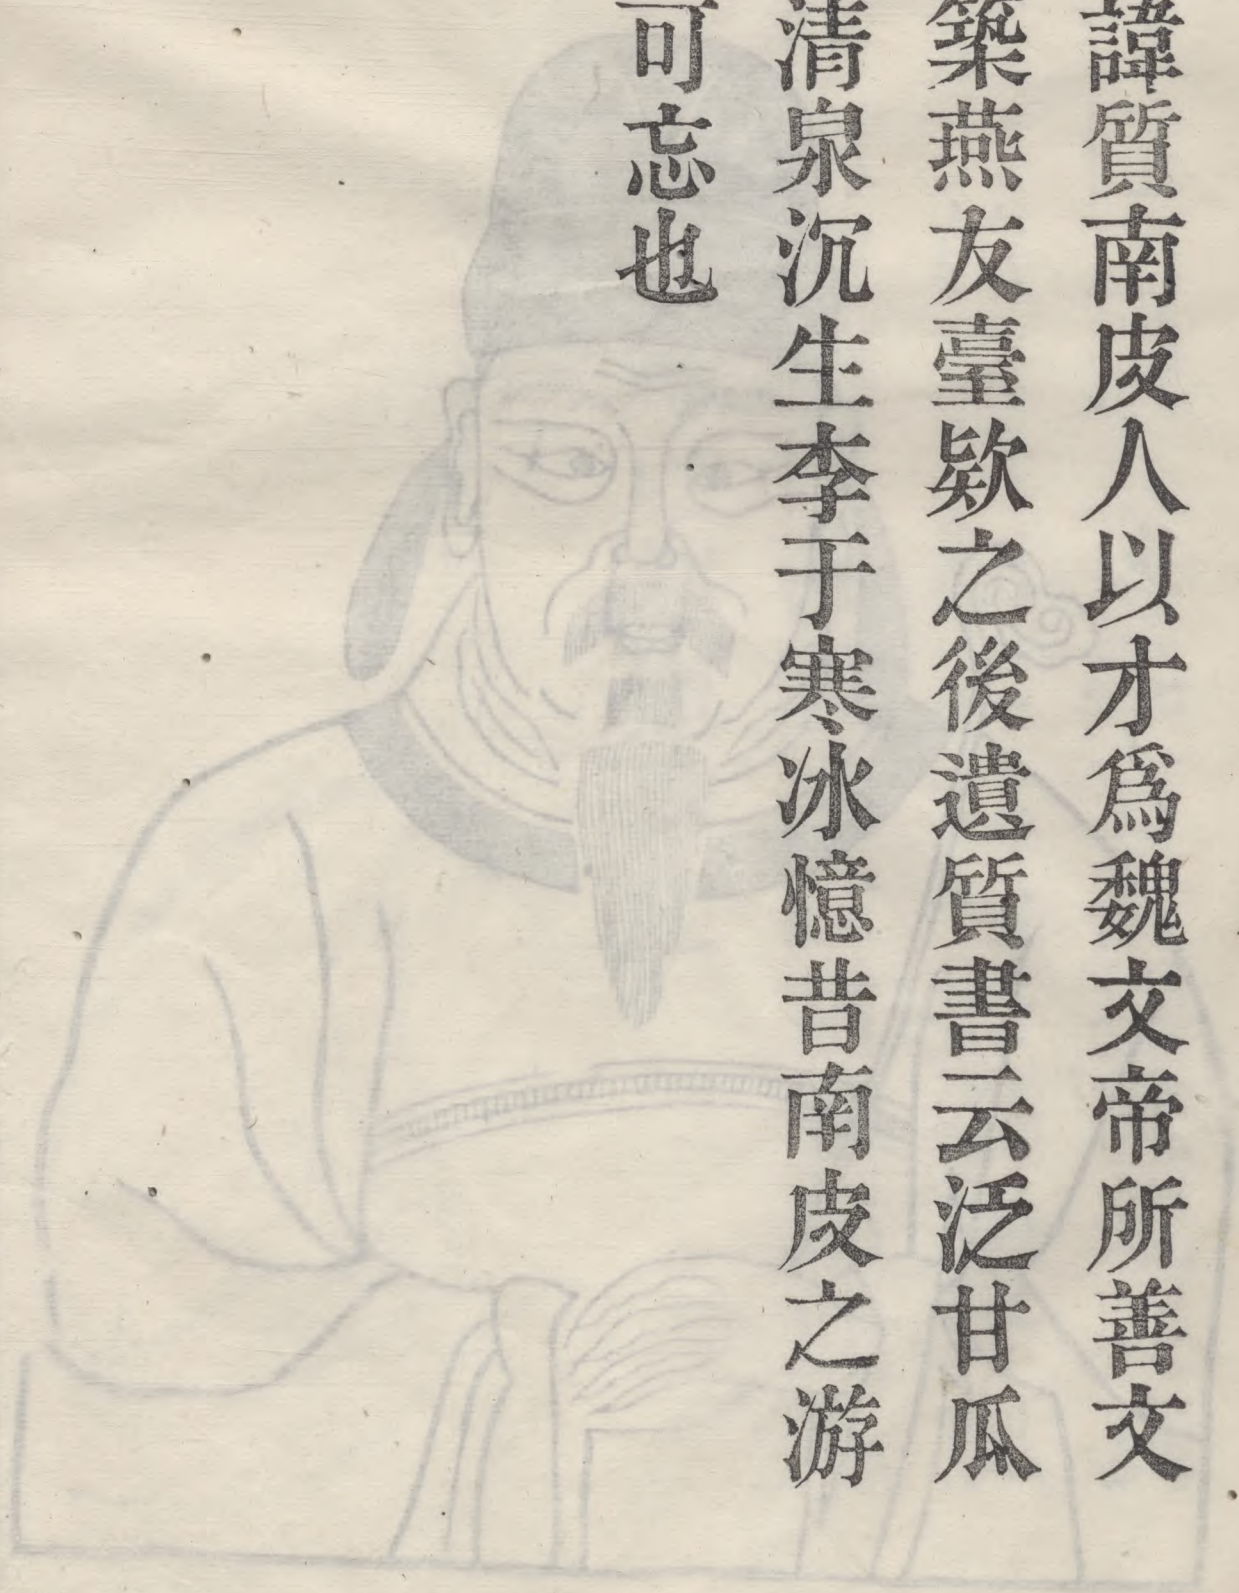 諱質南皮人以才爲魏文帝所善文
築燕友臺欵之後遺質書云泛甘瓜
清泉沉生李于寒冰憶昔南皮之游
可忘也